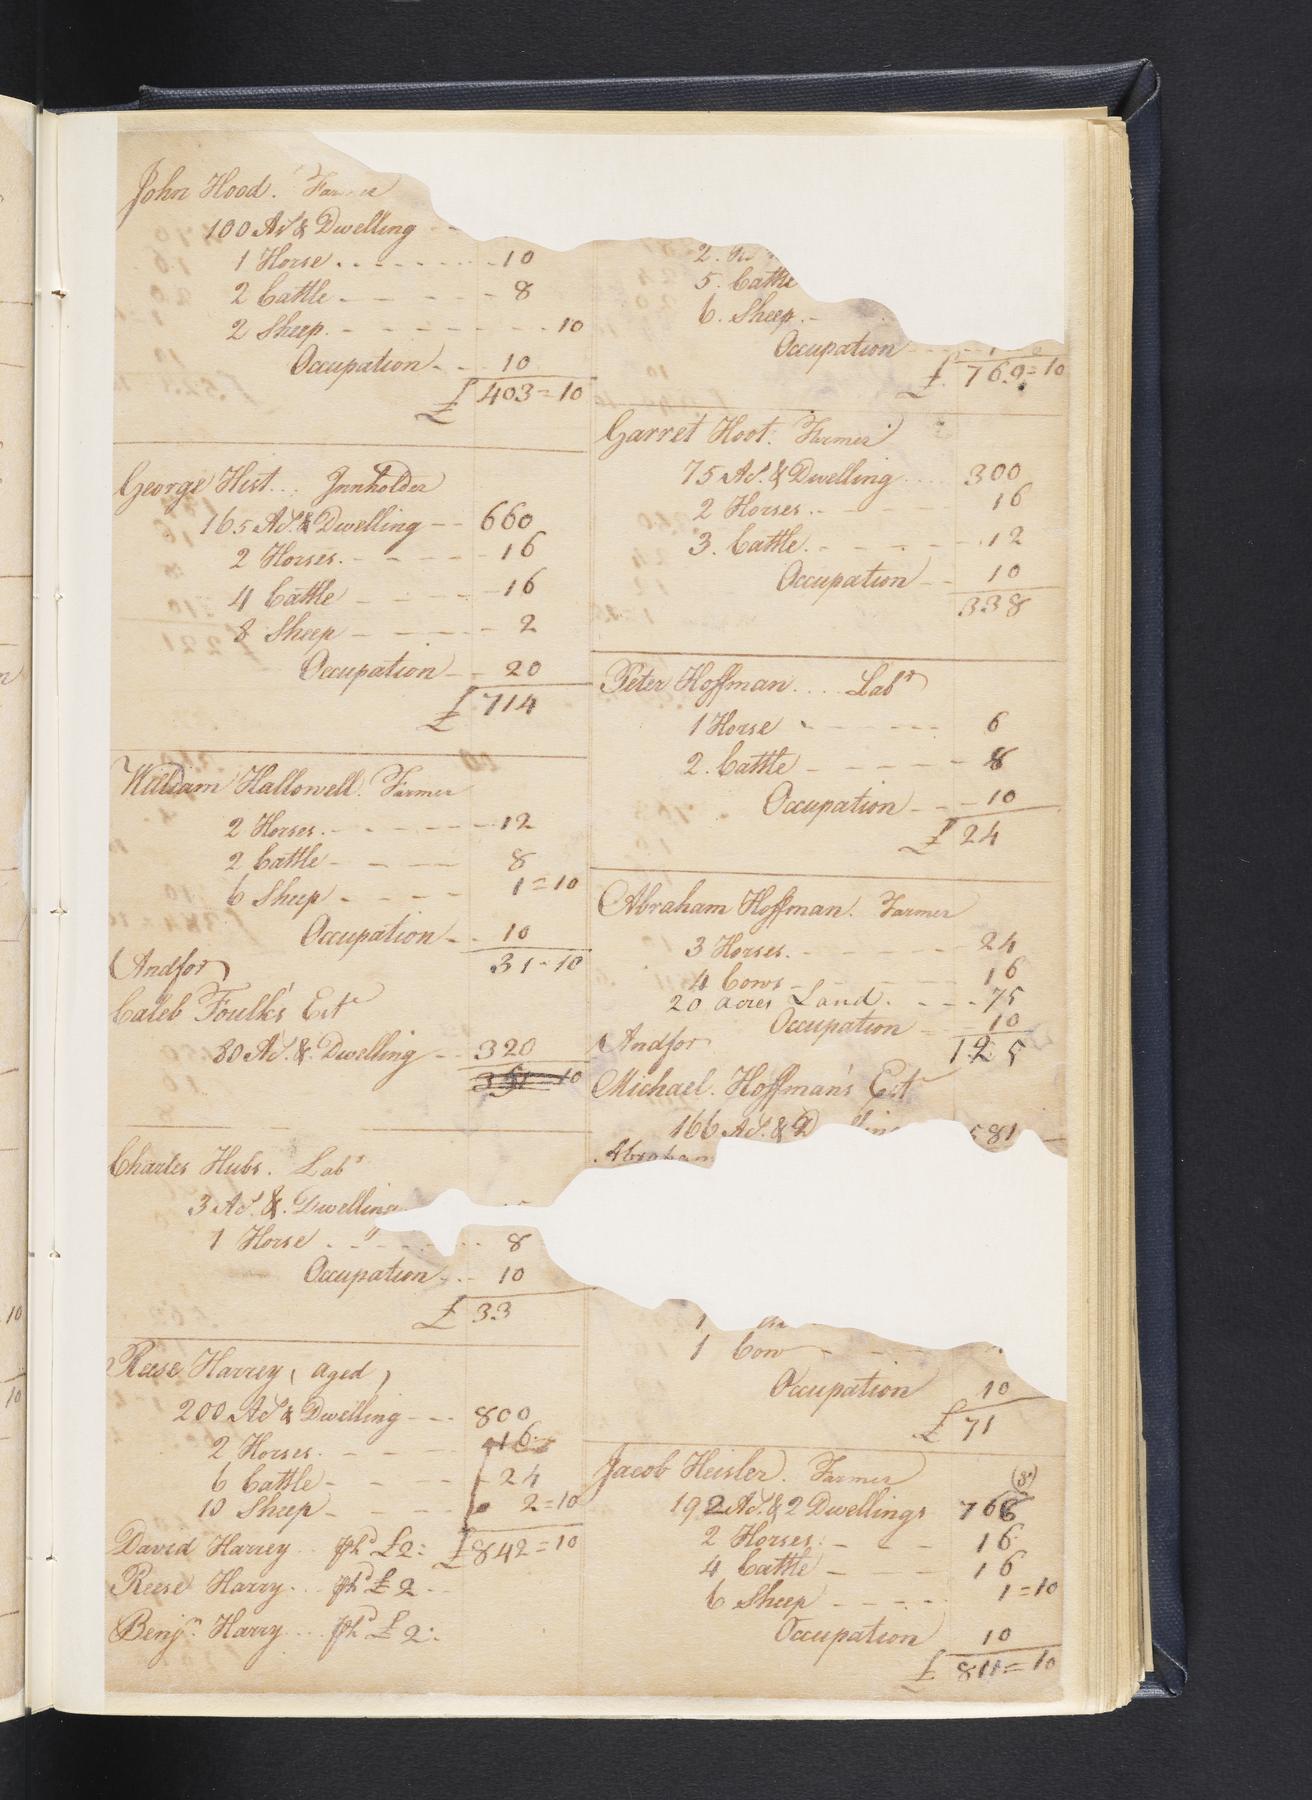 John Hood. Farmer
100 As. & Dwelling - -
1 Horse . - - - - - - - 10
2 Cattle - - - - - 8
2 Sheep. - - - - - - - - 10
Occupation - - 10
£ 403=10
George Hist... Innholder
165 As. & Dwelling - - 660
2 Horses. - - - - - 16
4 Cattle - - - - 16
8 Sheep - - - - 2
Occupation - - 20
£ 714
William Hallowell. Farmer
2 Horses. - - - - - 12
2 Cattle - - - - 8
6 Sheep - - - - 1=10
Occupation - - 10
31-10
And for
Caleb Foulk's Este
80 As. & Dwelling - - 320
351-10
Charles Hubs. Labr
3 As. & Dwelling
1 Horse . - " - - - - 8
Occupation - - 10
£ 33
Reese Harrey ( aged )
200 As. & Dwelling - - - 800
2 Horses. - - - 16
6 Cattle - - - 24
10 Sheep - - - 2=10
£842=10
David Harrey .. £2:
Reese Harry. .. £2 - -
Benjn. Harry ... £2:
2.
5. Cattle
6. Sheep. -
Occupation - -
£. 769=10
Garret Hoot. Farmer
75 As. & Dwelling .... 300
2 Horses. - - - - 16
3. Cattle. - - - - 12
Occupation - - 10
338
Peter Hoffman .... Labr
1 Horse - - - - 6
2. Cattle - - - - - 8
Occupation - - - 10
£ 24
Abraham Hoffman. Farmer
3 Horses. - - - - - 24
4 Cows - - - - 16
20 acres Land. - - - 75
Occupation - - 10
125
And for
Michael. Hoffman's Este
166 As. & 581
Abraham
1
1 Cow - - - -
Occupation 10
£ 71
Jacob Heisler. Farmer
(8.)
192 As. & 2 Dwellings 766
2 Horses: - - - 16
4 Cattle - - - 16
6 Sheep - - - - 1=10
Occupation 10
£ 811=10